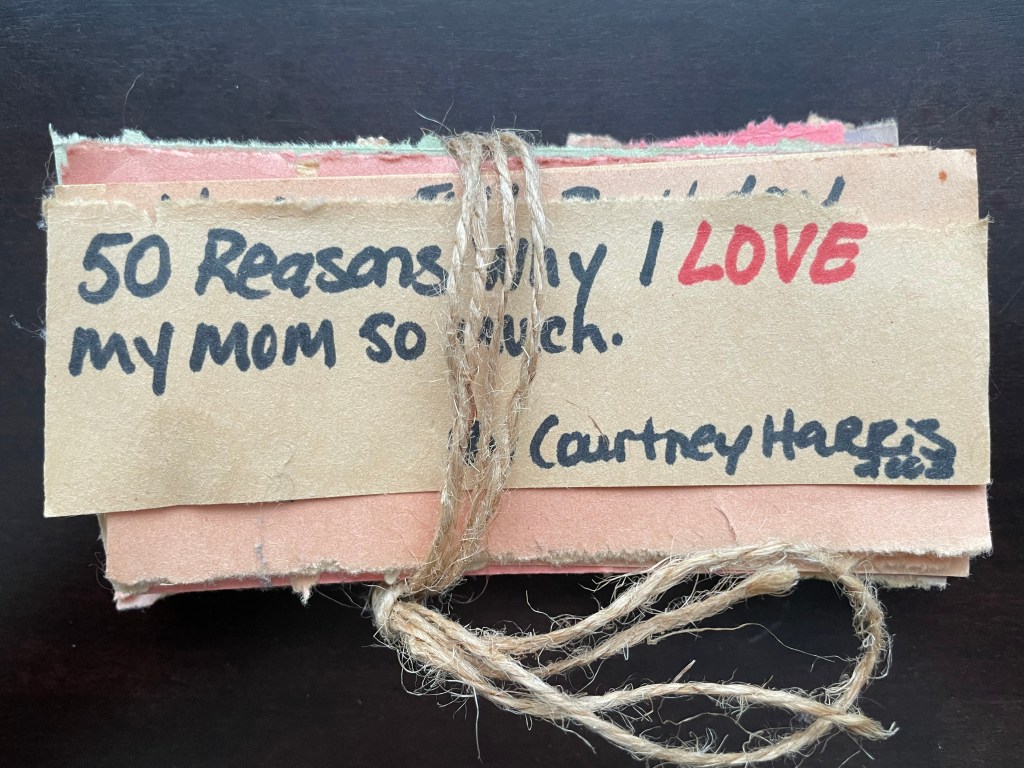 50 Reasons why I LOVE
my MOM so much.
Courtney Harris